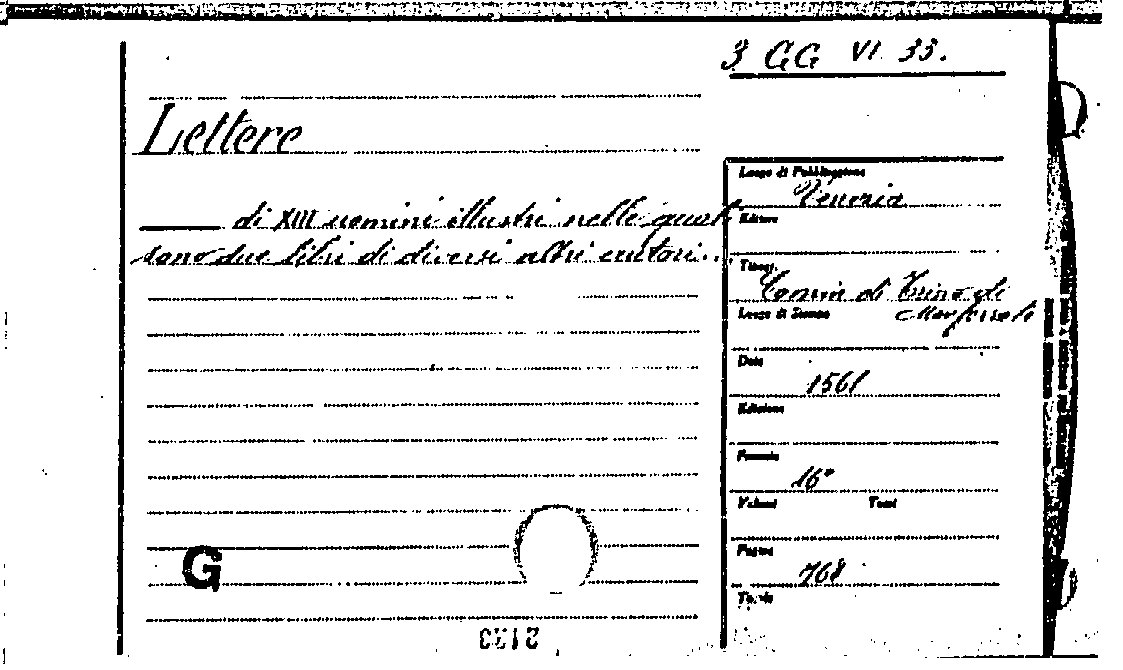 3 GG VI 33.
Lettere
di XIII uomini illustri nelle quali
sono due libri di diversi altri autori...
Luogo di Pubblicazione
Venezia
Editore
Tipogr.
Comin di Trino di
Monferrato
Luogo di Stampa
Data
1561
Edizione
Formato
16°
Volumi Tomi
Pagine
768
Tavole
G
2133